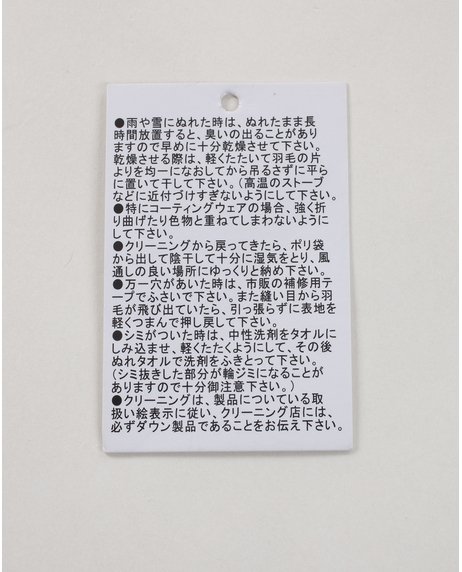 ●雨や雪にぬれた時は、ぬれたまま長
時間放置すると、臭いの出ることがあり
ますので早めに十分乾燥させて下さい。
乾燥させる際は、軽くたたいて羽毛の片
よりを均一になおしてから吊るさずに平ら
に置いて干して下さい。(高温のストーブ
などに近付づけすぎないようにして下さい。
●特にコーティングウェアの場合、強く折
り曲げたり色物と重ねてしまわないように
して下さい。
●クリーニングから戻ってきたら、ポリ袋
から出して陰干して十分に湿気をとり、風
通しの良い場所にゆっくりと納め下さい。
●万一穴があいた時は、市販の補修用テ
ープでふさいで下さい。また縫い目から羽
毛が飛び出ていたら、引っ張らずに表地を
軽くつまんで押し戻して下さい。
●シミがついた時は、中性洗剤をタオルに
しみ込ませ、軽くたたくようにして、その後
ぬれタオルで洗剤をふきとって下さい。
(シミ抜きした部分が輪ジミになることが
ありますので十分御注意下さい。)
●クリーニングは、製品についている取
扱い絵表示に従い、クリーニング店には、
必ずダウン製品であることをお伝え下さい。